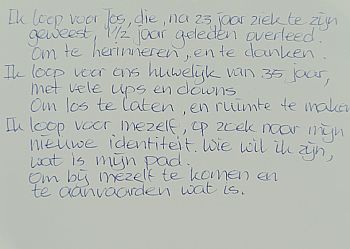 Ik loop voor Jos, die, na 23 jaar ziek te zijn
geweest, 1/2 jaar geleden overleed.
Om te herinneren, en te danken.
Ik loop voor ons huwelijk van 35 jaar,
met vele ups en downs.
Om los te laten, en ruimte te maken
Ik loop voor mezelf, op zoek naar mijn
nieuwe identiteit. Wie wil ik zijn,
wat is mijn pad.
Om bij mezelf te komen en
te aanvaarden wat is.